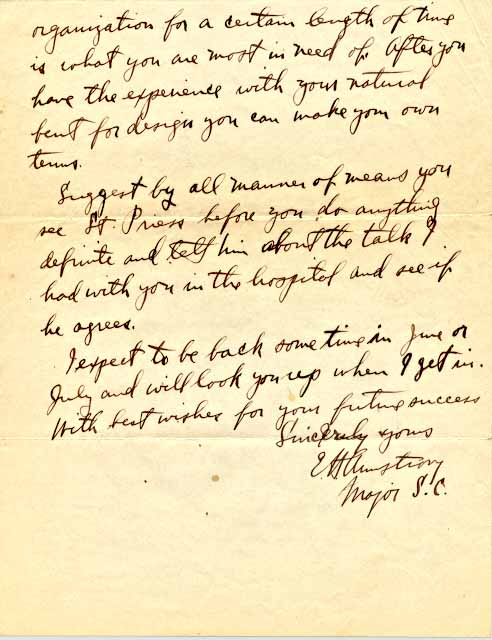 organization for a certain length of time
is what you are most in need of. After you
have the experience with your natural
bent for design you can make your own
terms.
Suggest by all manner of means you
see Lt. Priess before you do anything
definite and tell him about the talk I
had with you in the hospital and see if
he agrees.
I expect to be back sometime in June or
July and will look you up when I get in.
With best wishes for your future success
Sincerely yours
E H Armstrong
Major S.C.